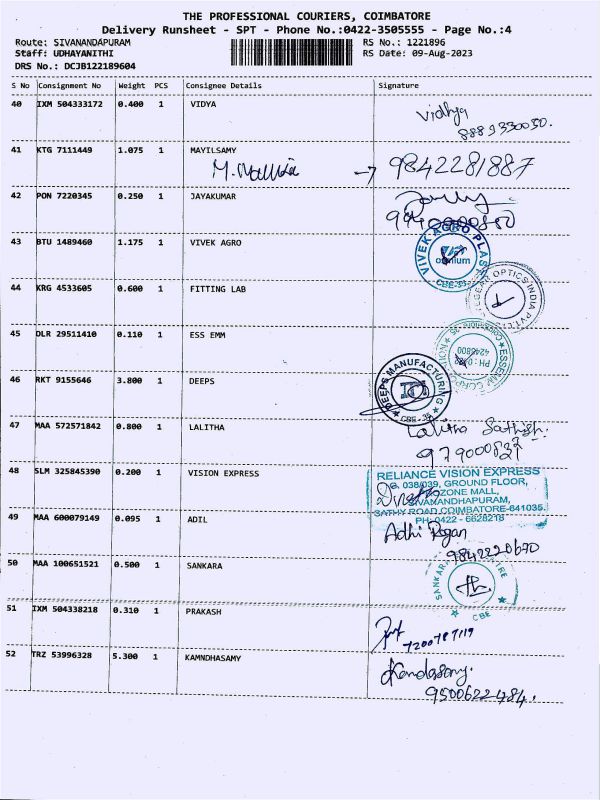 THE PROFESSIONAL COURIERS, COIMBATORE
Delivery Runsheet - SPT - Phone No.:0422-3505555 - Page No.:4
Route: SIVANANDAPURAM RS No.: 1221896
Staff: UDHAYANITHI RS Date: 09-Aug-2023
DRS No.: DCJB122189604
S No Consignment No Weight PCS Consignee Details Signature
40 IXM 504333172 0.400 1 VIDYA
Vidhya
8889330030.
41 KTG 7111449 1.075 1 MAYILSAMY
M. → 9842281887
42 PON 7220345 0.250 1 JAYAKUMAR
43 BTU 1489460 1.175 1 VIVEK AGRO
VIVEK AGRO PLAST
CBE-35
44 KRG 4533605 0.600 1 FITTING LAB
OPTICS INDIA PVT.
45 DLR 29511410 0.110 1 ESS EMM
ESSEMM CORPORATION
PH:
46 RKT 9155646 3.800 1 DEEPS
DEEPS MANUFACTURING
CBE-35
47 MAA 572571842 0.800 1 LALITHA
Lalitha Sathish.
48 SLM 325845390 0.200 1 VISION EXPRESS
RELIANCE VISION EXPRESS
G. 038/039, GROUND FLOOR,
OZONE MALL,
SIVANANDHAPURAM,
SATHY ROAD, COIMBATORE-641035.
PH: 0422 - 6628218
49 MAA 600079149 0.095 1 ADIL
Adhi Rogan
9842220670
50 MAA 100651521 0.500 1 SANKARA
SANKARA
CBE
51 IXM 504338218 0.310 1 PRAKASH
7200787119
52 TRZ 53996328 5.300 1 KAMNDHASAMY
Kandasamy.
9500622484.